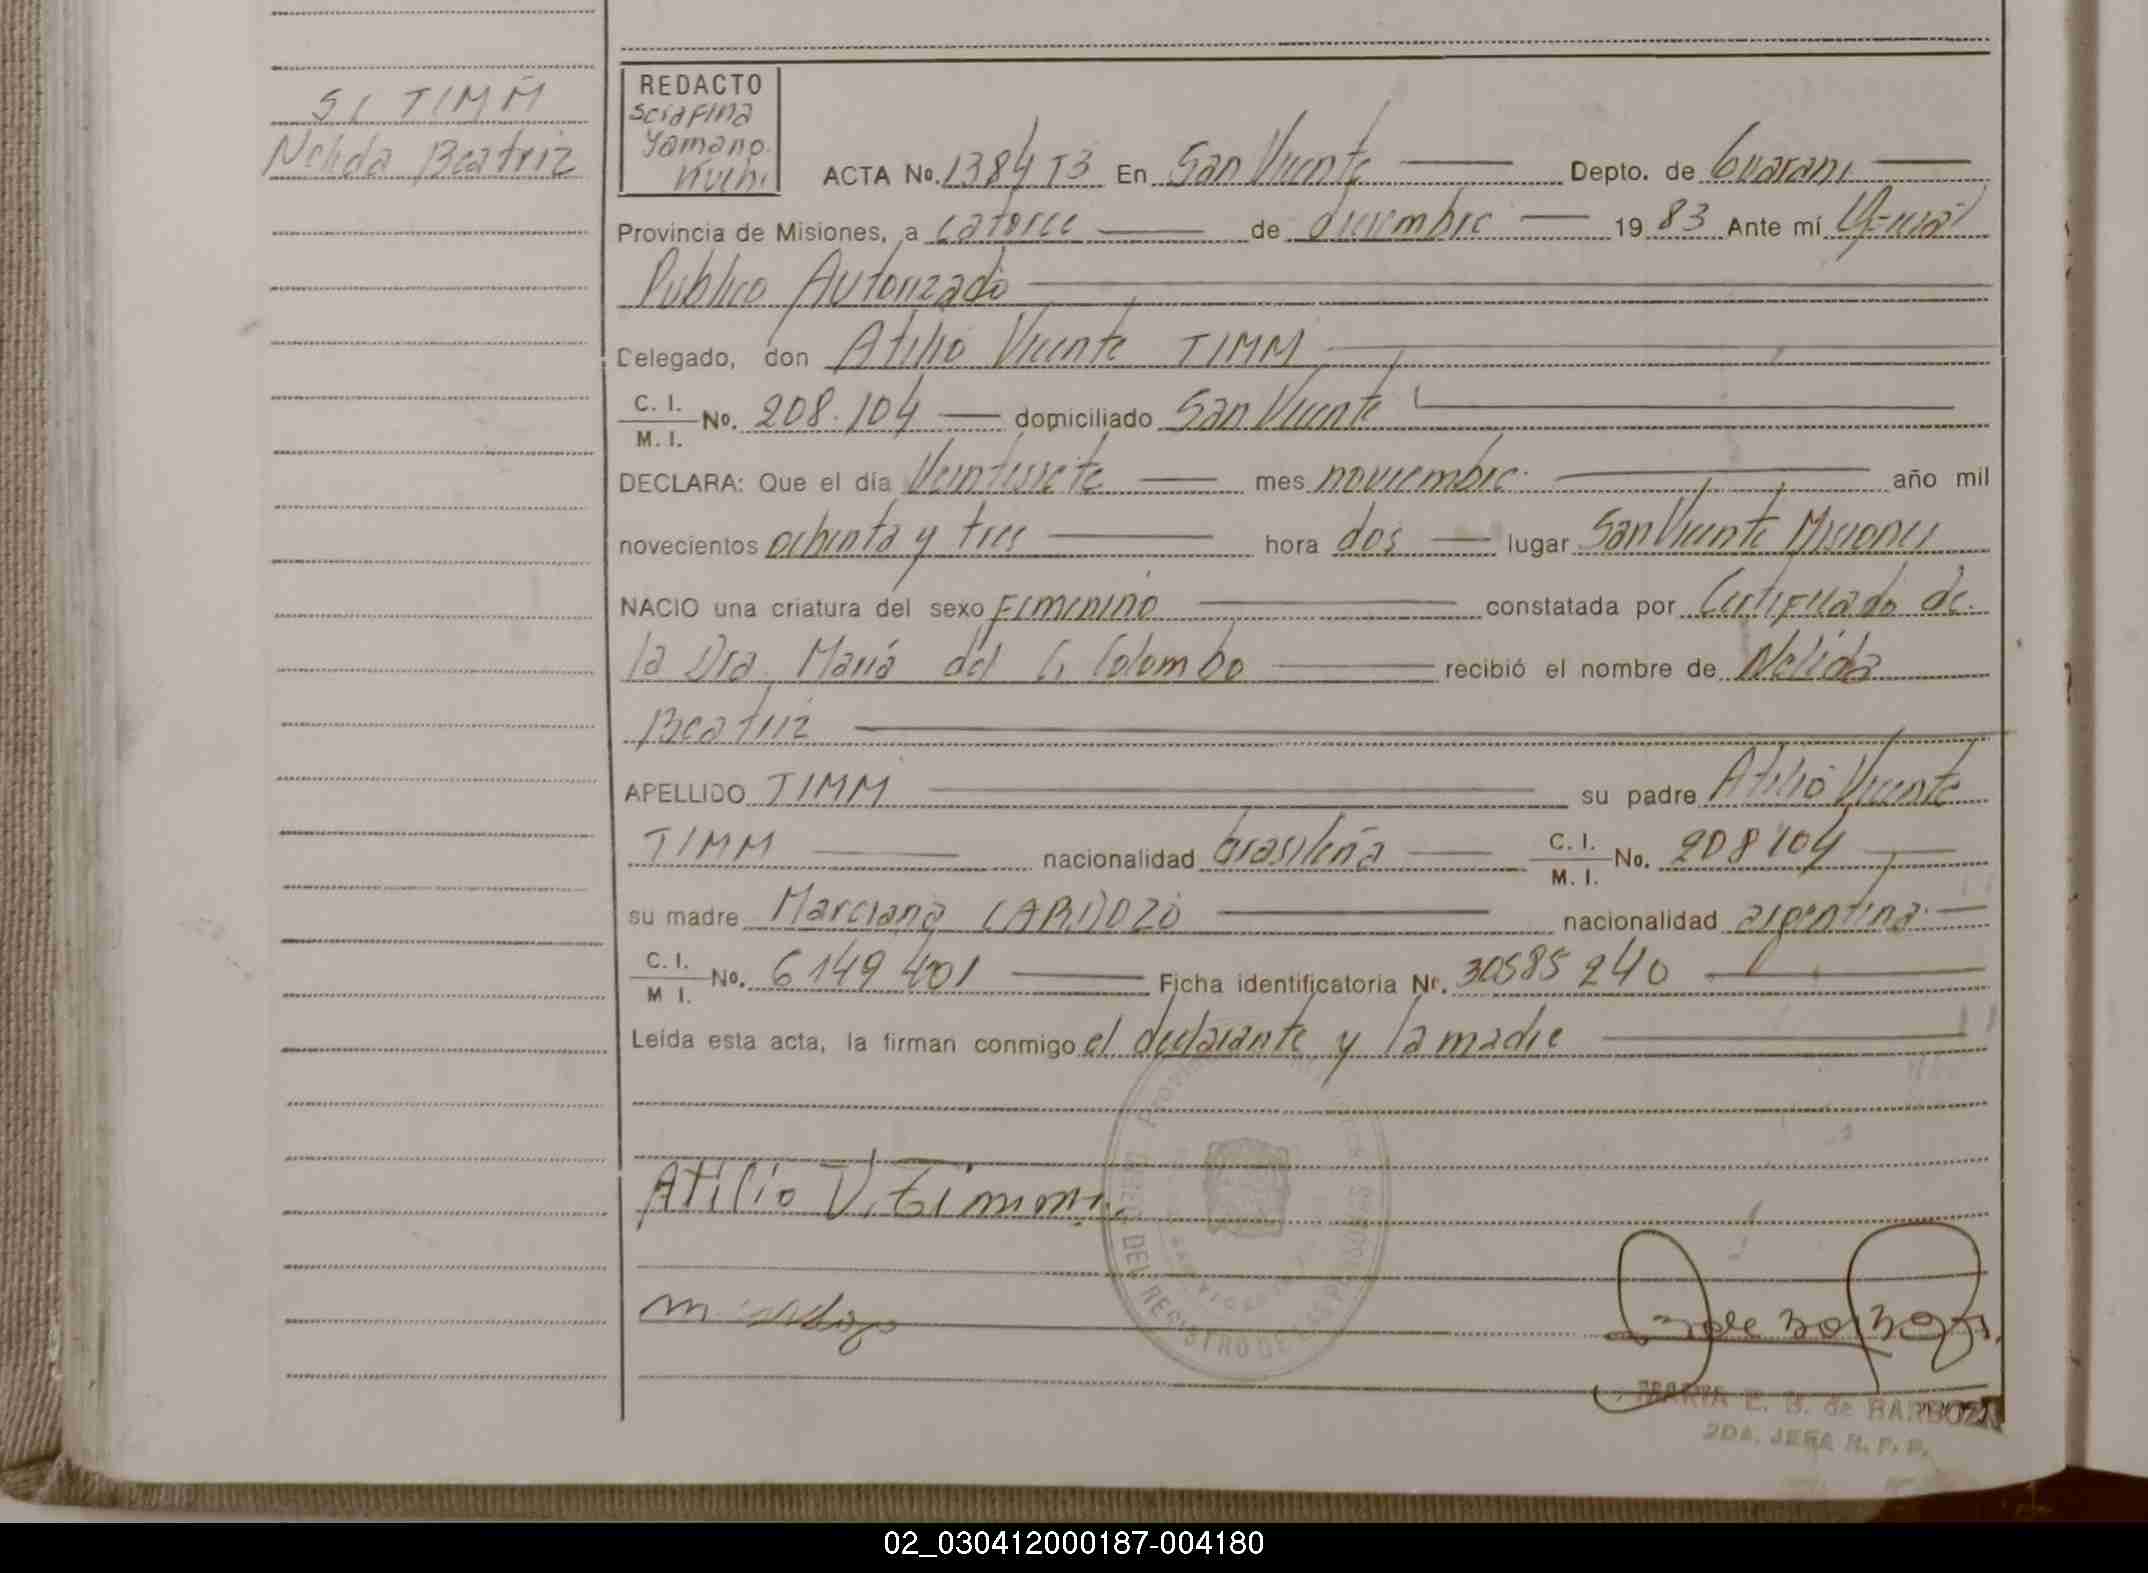 S/ TIMM
Nelida Beatriz
REDACTO
Serafina
Yamano
Kuchi
ACTA No. 1384 T3 En San Vicente Depto. de Guarani
Provincia de Misiones, a catorce de diciembre 1983 Ante mí Oficial
Público Autorizado
Delegado, don Atilio Vicente TIMM
C. I.
M. I. No. 208.104 domiciliado San Vicente
DECLARA: Que el día Veintisiete mes noviembre año mil
novecientos ochenta y tres hora dos lugar San Vicente Misiones
NACIO una criatura del sexo Femenino constatada por Certificado de
la Dra. María del C. Colombo recibió el nombre de Nélida
Beatriz
APELLIDO TIMM su padre Atilio Vicente
TIMM nacionalidad brasileña C. I. M. I. No. 208104
su madre Marciana CARDOZO nacionalidad argentina
C. I. M I. No. 6149401 Ficha identificatoria Nr. 30585240
Leída esta acta, la firman conmigo el declarante y la madre
Atilio V. Timm
MARIA E. B. de BARBOZA
2DA. JEFA R. P. P.
DEL REGISTRO DE LAS PERSONAS
02_030412000187-004180